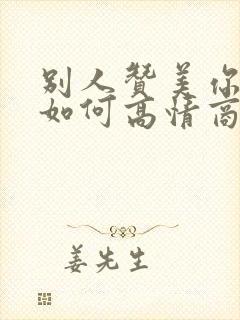 别人赞美你
如何高情商
姜先生